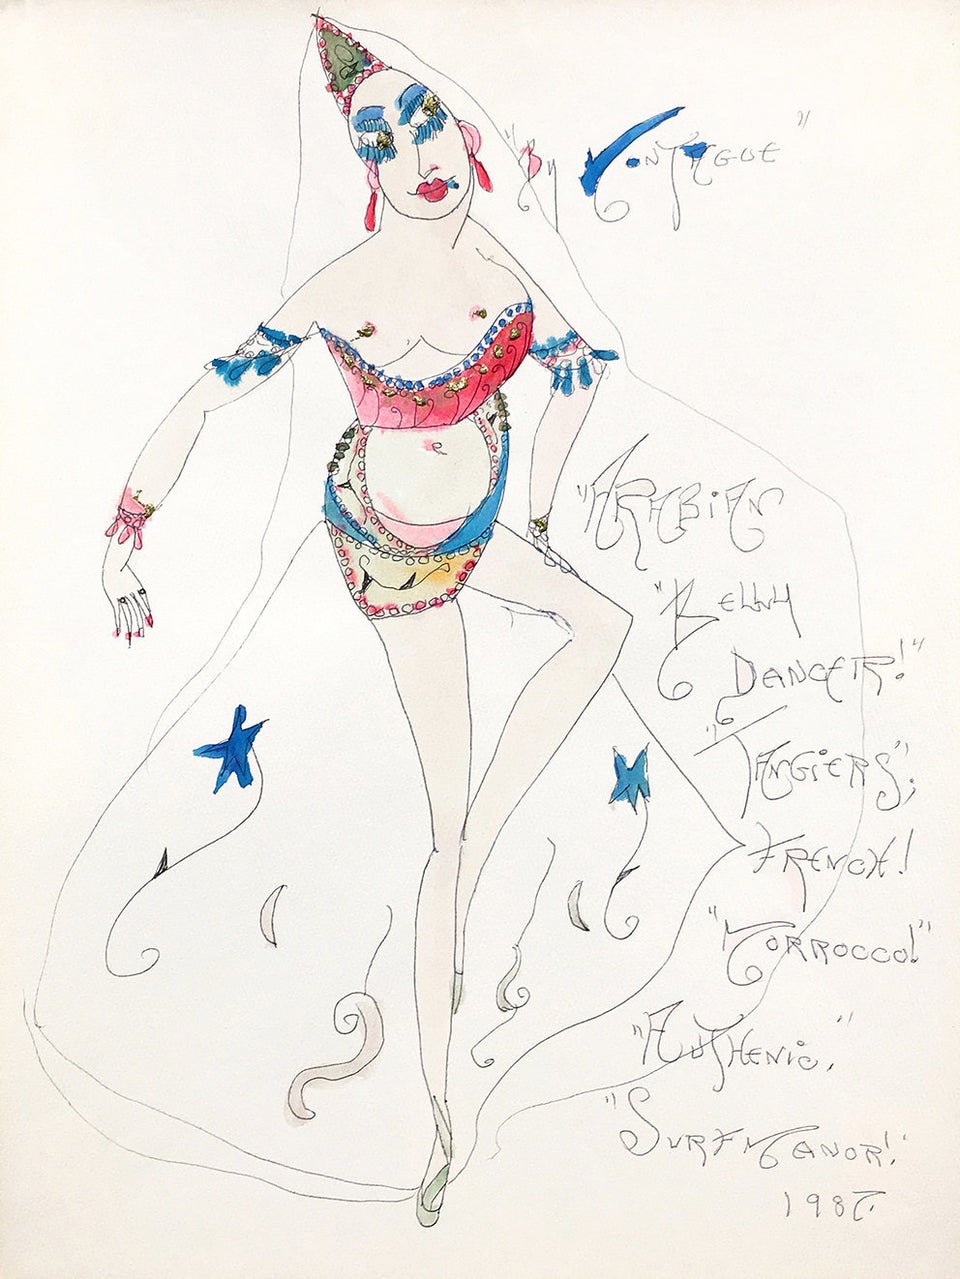 "By MONTAGUE"
"ARABiAN
"BELLY
DANCER!"
"TANGiERS";
FRENCH!
"MORROCCO!"
"AUTHENiC."
"SURF MANOR!"
1987.